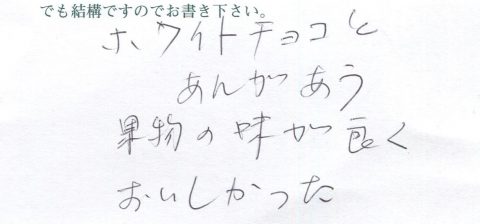 でも結構ですのでお書き下さい。
ホワイトチョコと
あんがあう
果物の味が良く
おいしかった